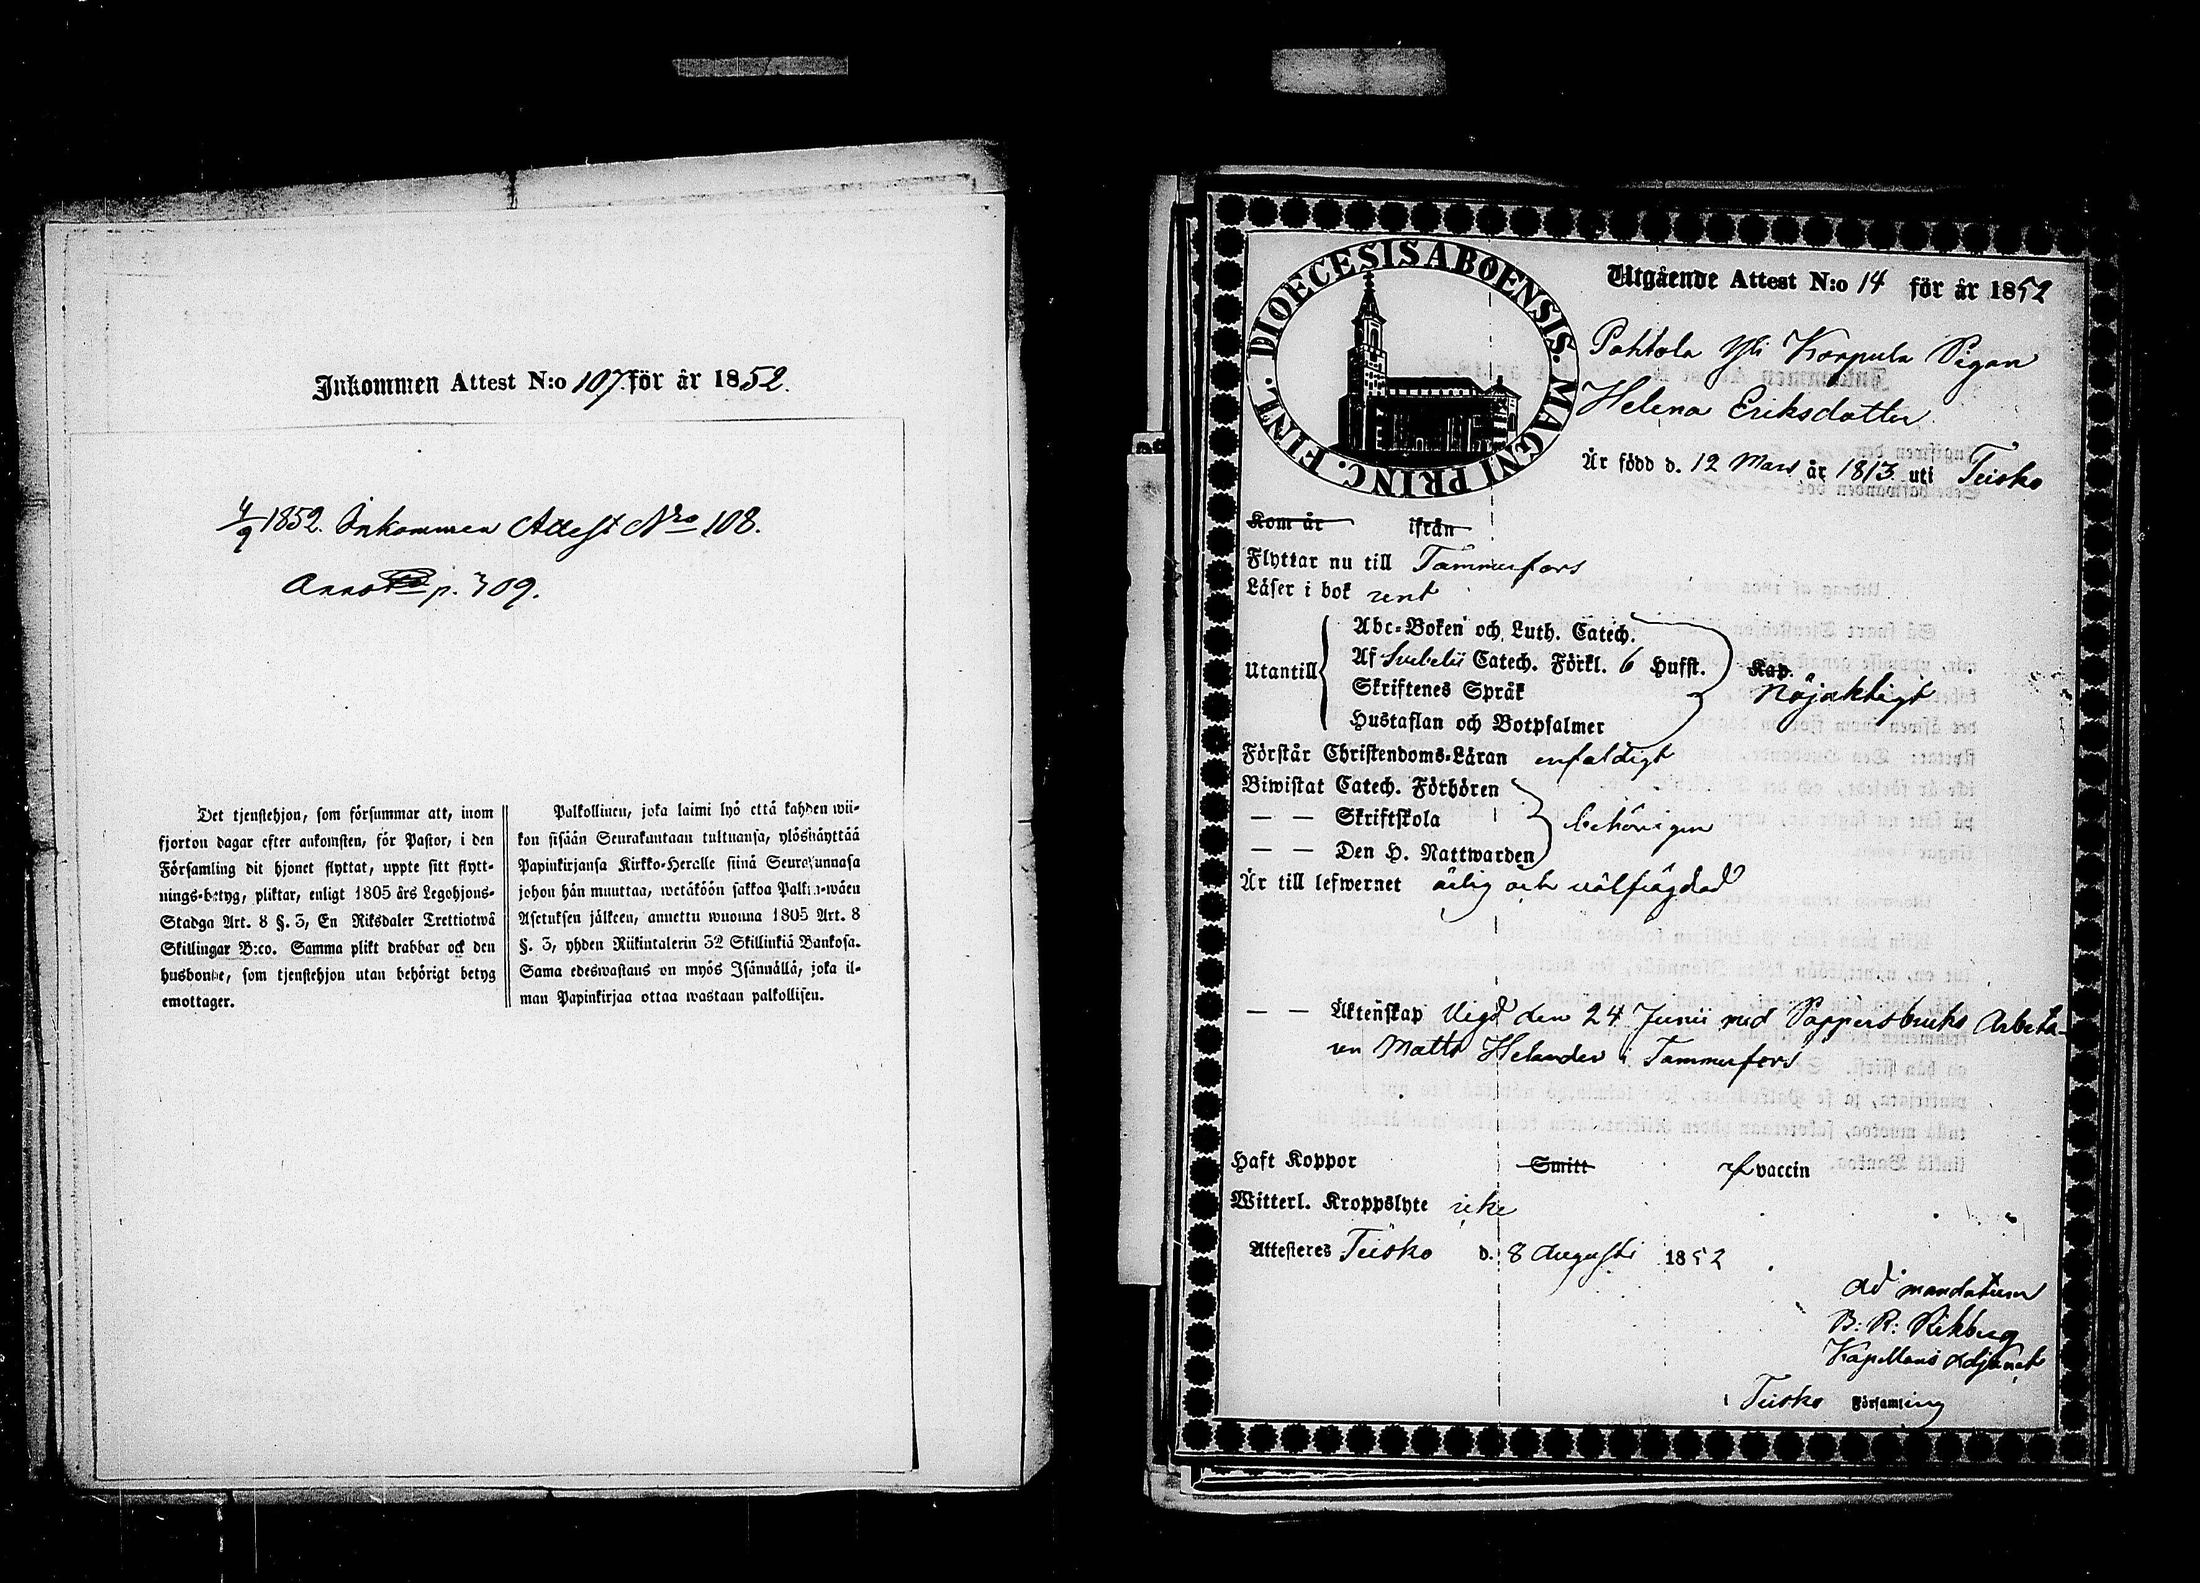 Inkommen Attest N:o 107 för år 1852.
4/9 1852. Inkommen Attest Nro 108.
p. 309.
Det tjenstehjon, som försummar att, inom
fjorton dagar efter ankomsten, för Pastor, i den
Församling dit hjonet flyttat, uppte sitt flytt-
nings-betyg, pliktar, enligt 1805 års Legohjons-
Stadga Art. 8 §. 3, En Riksdaler Trettiotwå
Skillingar B:co. Samma plikt drabbar ock den
husbonde, som tjenstehjon utan behörigt betyg
emottager.
Palkollinen, joka laimi lyö että kahden wii-
kon sisään Seurakuntaan tultuansa, ylöshäyttää
Papinkirjansa Kirkko-Heralle siinä Seurakunnasa
johon hän muuttaa, wetäköön sakkoa Palkin-wäen
Asetuksen jälkeen, annettu wuonna 1805 Art. 8
§. 3, yhden Riikintalerin 32 Skillinkiä Bankosa.
Sama edeswastaus on myös Isännällä, joka il-
man Papinkirjaa ottaa wastaan palkollisen.
DIOECESIS ABOENSIS. MAGNI PRINC. FINL.
Utgående Attest N:o 14 för år 1852
Pohtola Yli Korpula Pigan
Helena Eriksdotter
Är född d. 12 Mars år 1813 uti Teisko
Kom år ifrån
Flyttar nu till Tammerfors
Läser i bok rent
Utantill
Abc-Boken och Luth. Catech.
Af Svebelii Catech. Förkl. 6 Hufst. Kap.
Skriftenes Språk
Nöjaktigt
Hustaflan och Botpsalmer
Förstår Christendoms-Läran enfaldigt
Biwistat Catech. Förhören
— — Skriftskola behörigen
— — Den H. Nattwarden
Är till lefwernet ärlig och välfrägdad
— — Äktenskap Vigd den 24 Junii med Pappersbruks Arbeta-
ren Matts Helander i Tammerfors
Haft Koppor Smitt af vaccin
Witterl. Kroppslyte icke
Attesteres Teisko d. 8 Augusti 1852
Ad mandatum
B: R: Rikberg
Kapellans Adjunct
i Teisko Församling